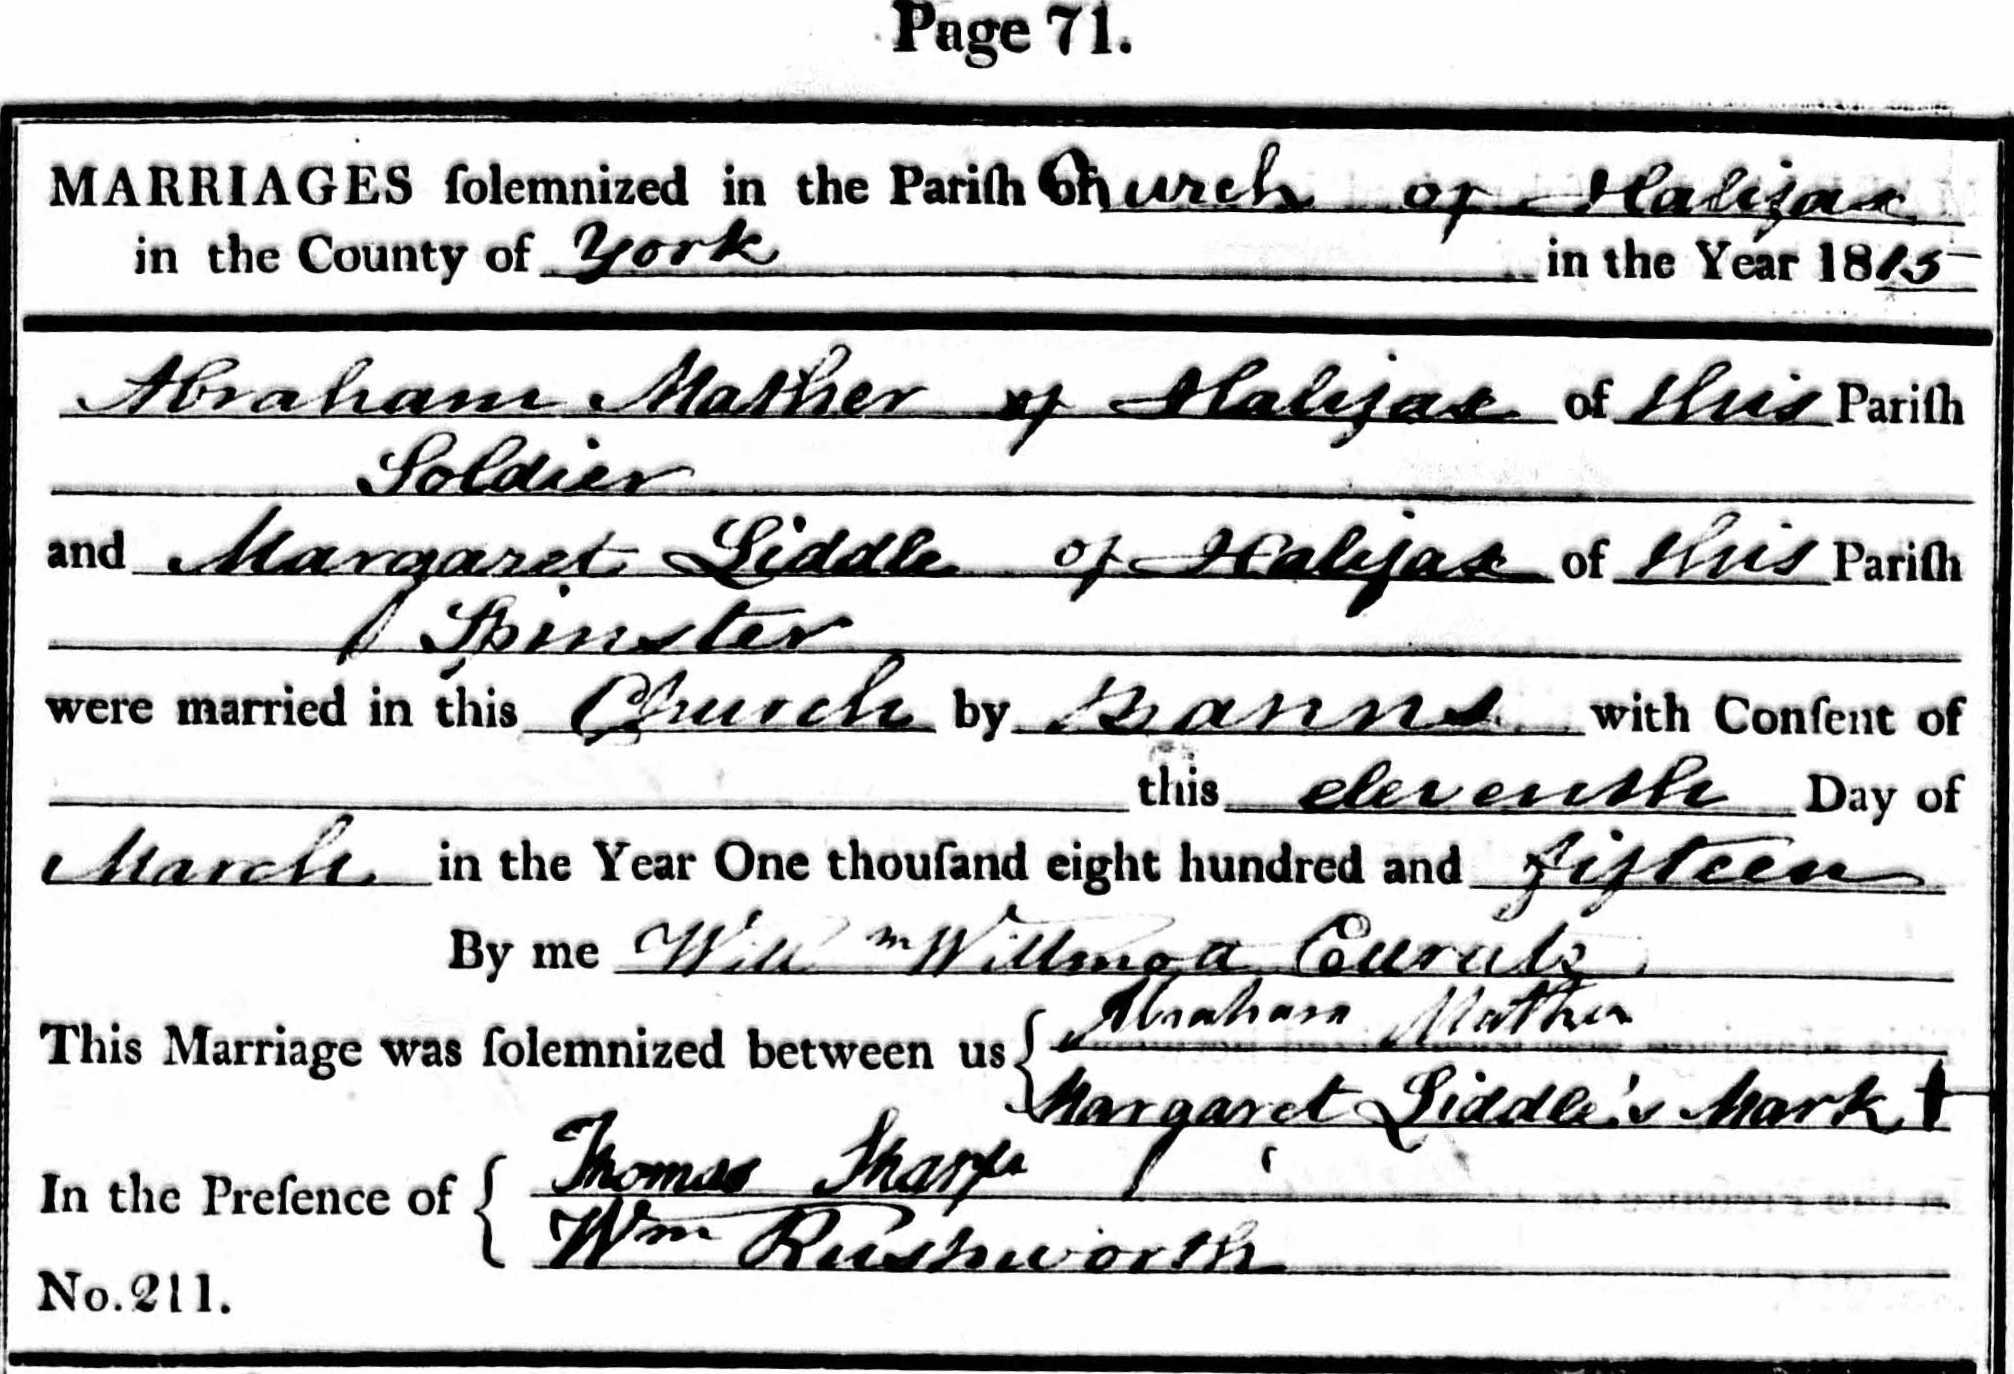 Page 71.
MARRIAGES ſolemnized in the Pariſh Church of Halifax
in the County of York in the Year 1815
Abraham Mather of Halifax of this Pariſh
Soldier
and Margaret Liddle of Halifax of this Pariſh
Spinster
were married in this Church by Banns with Conſent of
this eleventh Day of
March in the Year One thouſand eight hundred and fifteen
By me Willm Willmott Curate
This Marriage was ſolemnized between us { Abraham Mather
Margaret Liddle's Mark +
In the Preſence of { Thomas Sharp
Wm Rushworth
No. 211.